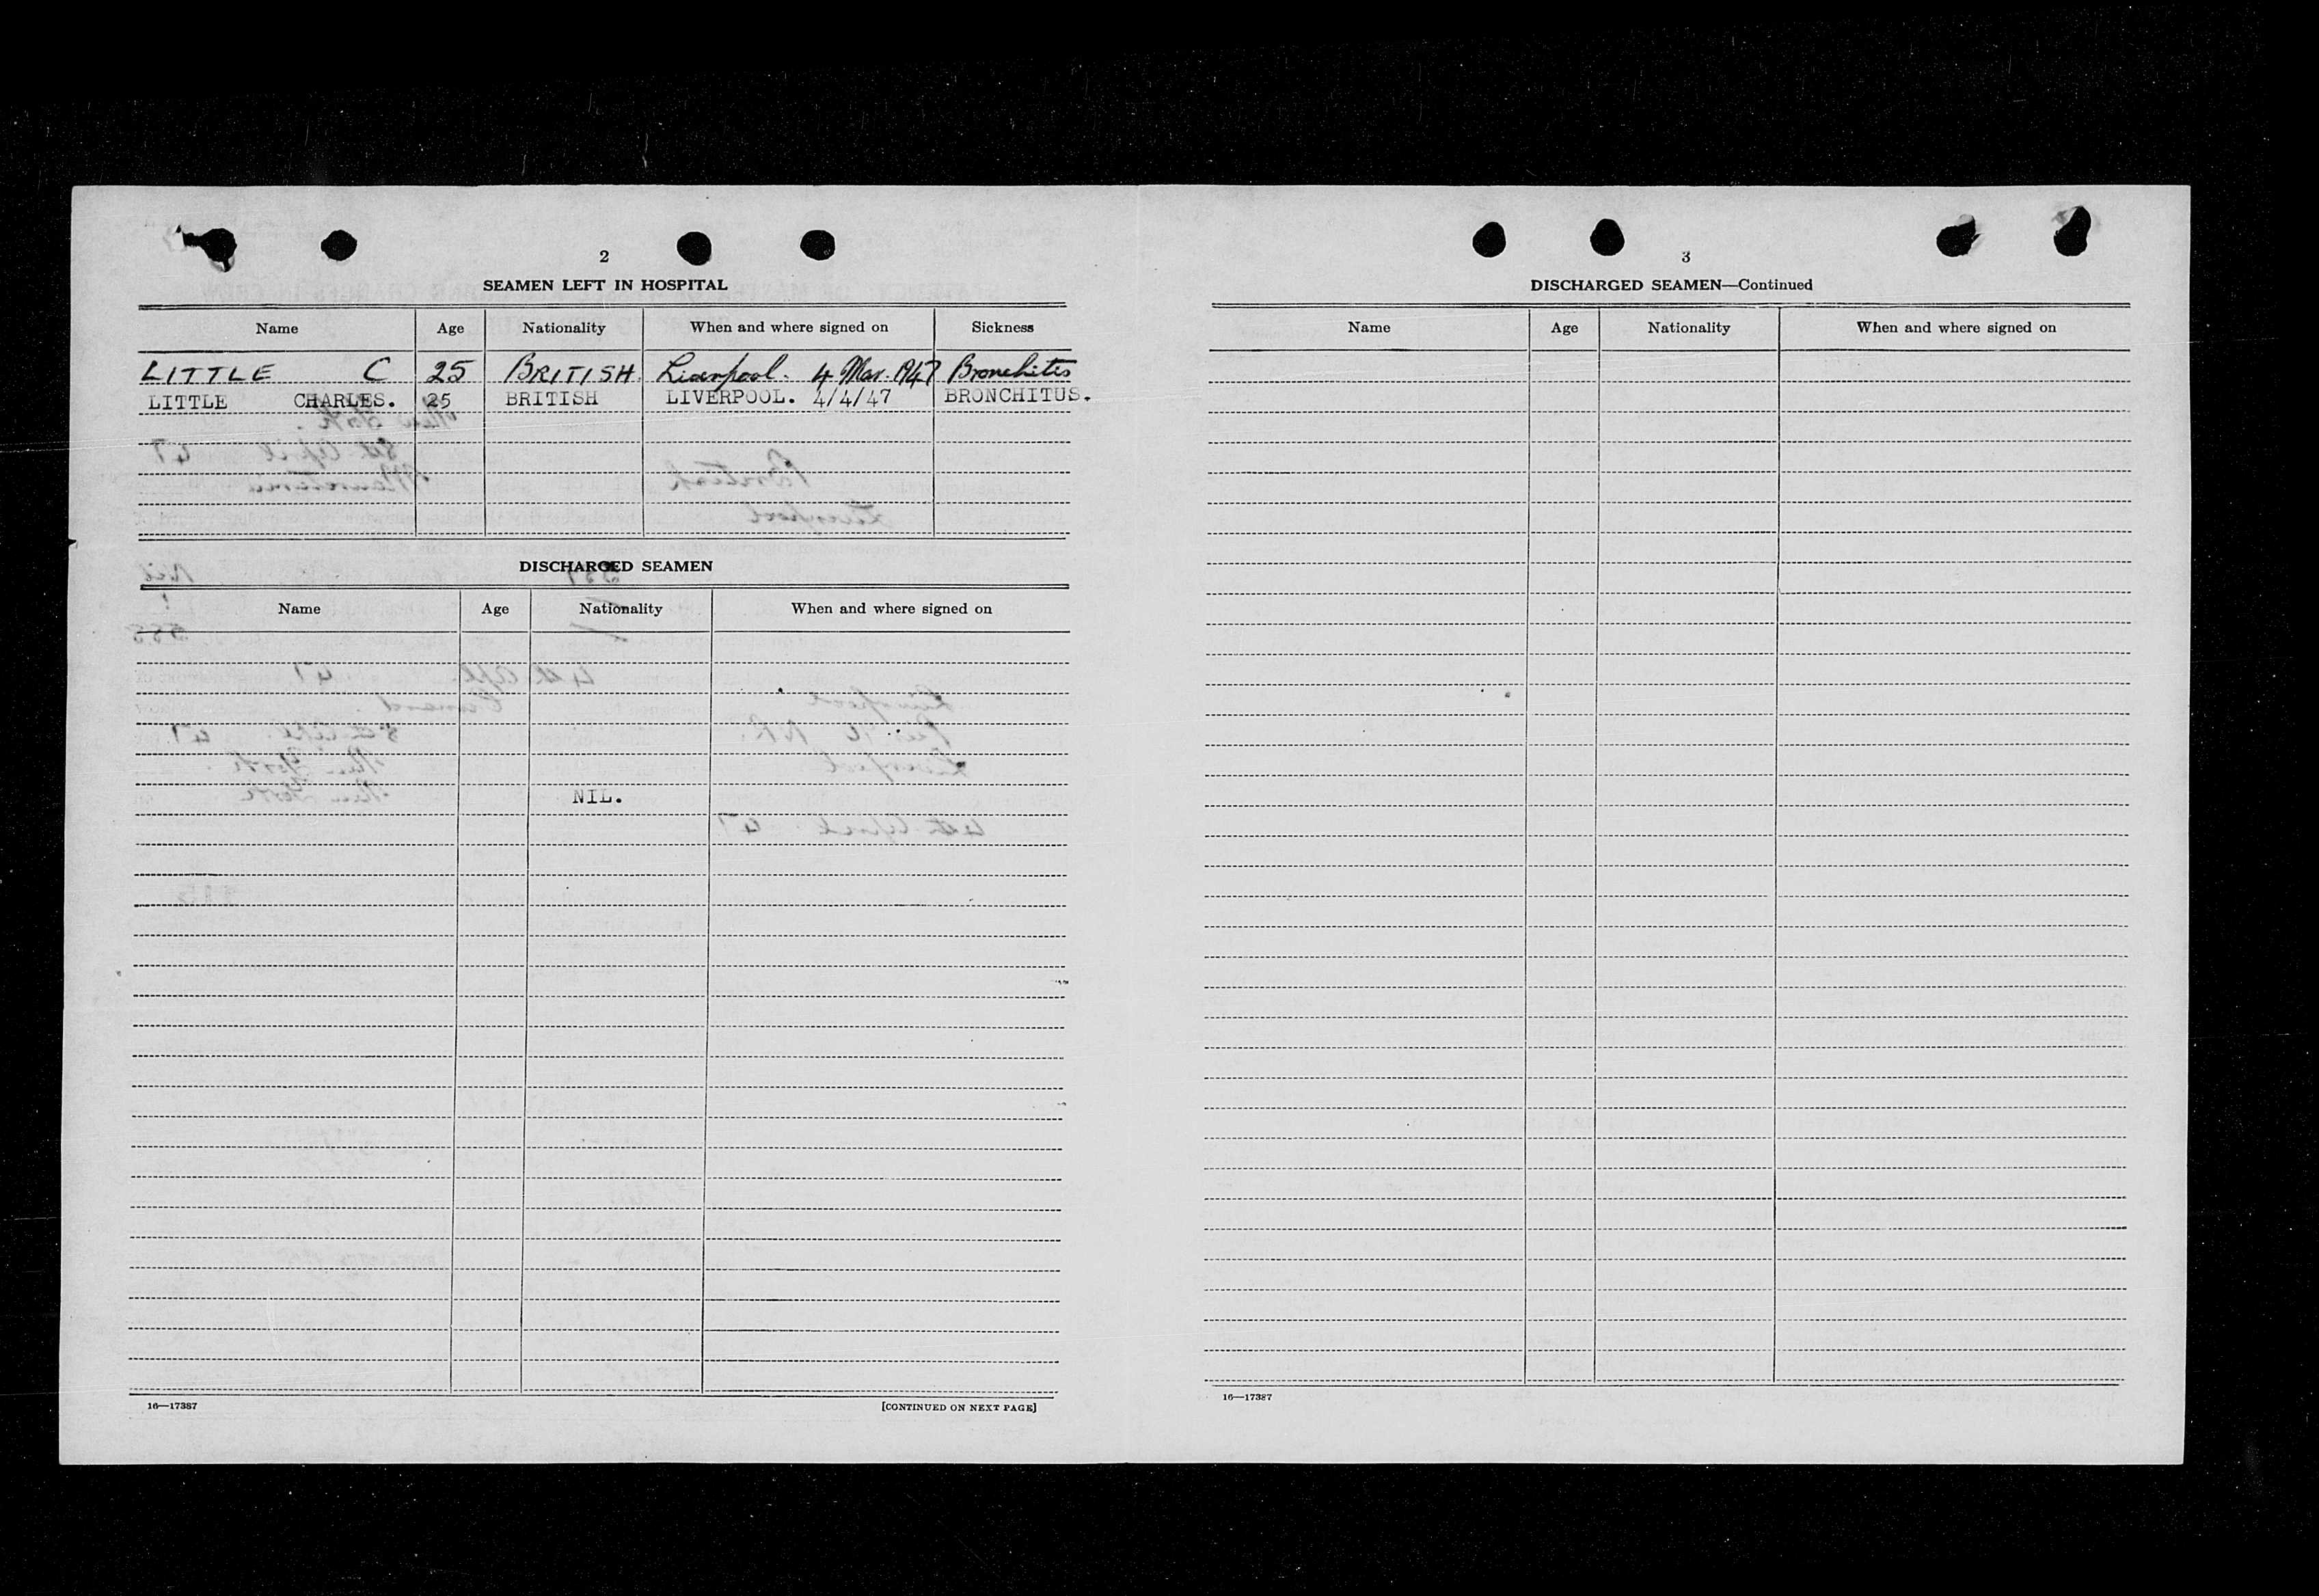 2
SEAMEN LEFT IN HOSPITAL
Name Age Nationality When and where signed on Sickness
LITTLE C 25 BRITISH Liverpool. 4 Mar. 1947 Bronchitis
LITTLE CHARLES. 25 BRITISH LIVERPOOL. 4/4/47 BRONCHITUS.
DISCHARGED SEAMEN
Name Age Nationality When and where signed on
NIL.
16—17387 [CONTINUED ON NEXT PAGE]
3
DISCHARGED SEAMEN—Continued
Name Age Nationality When and where signed on
16—17387